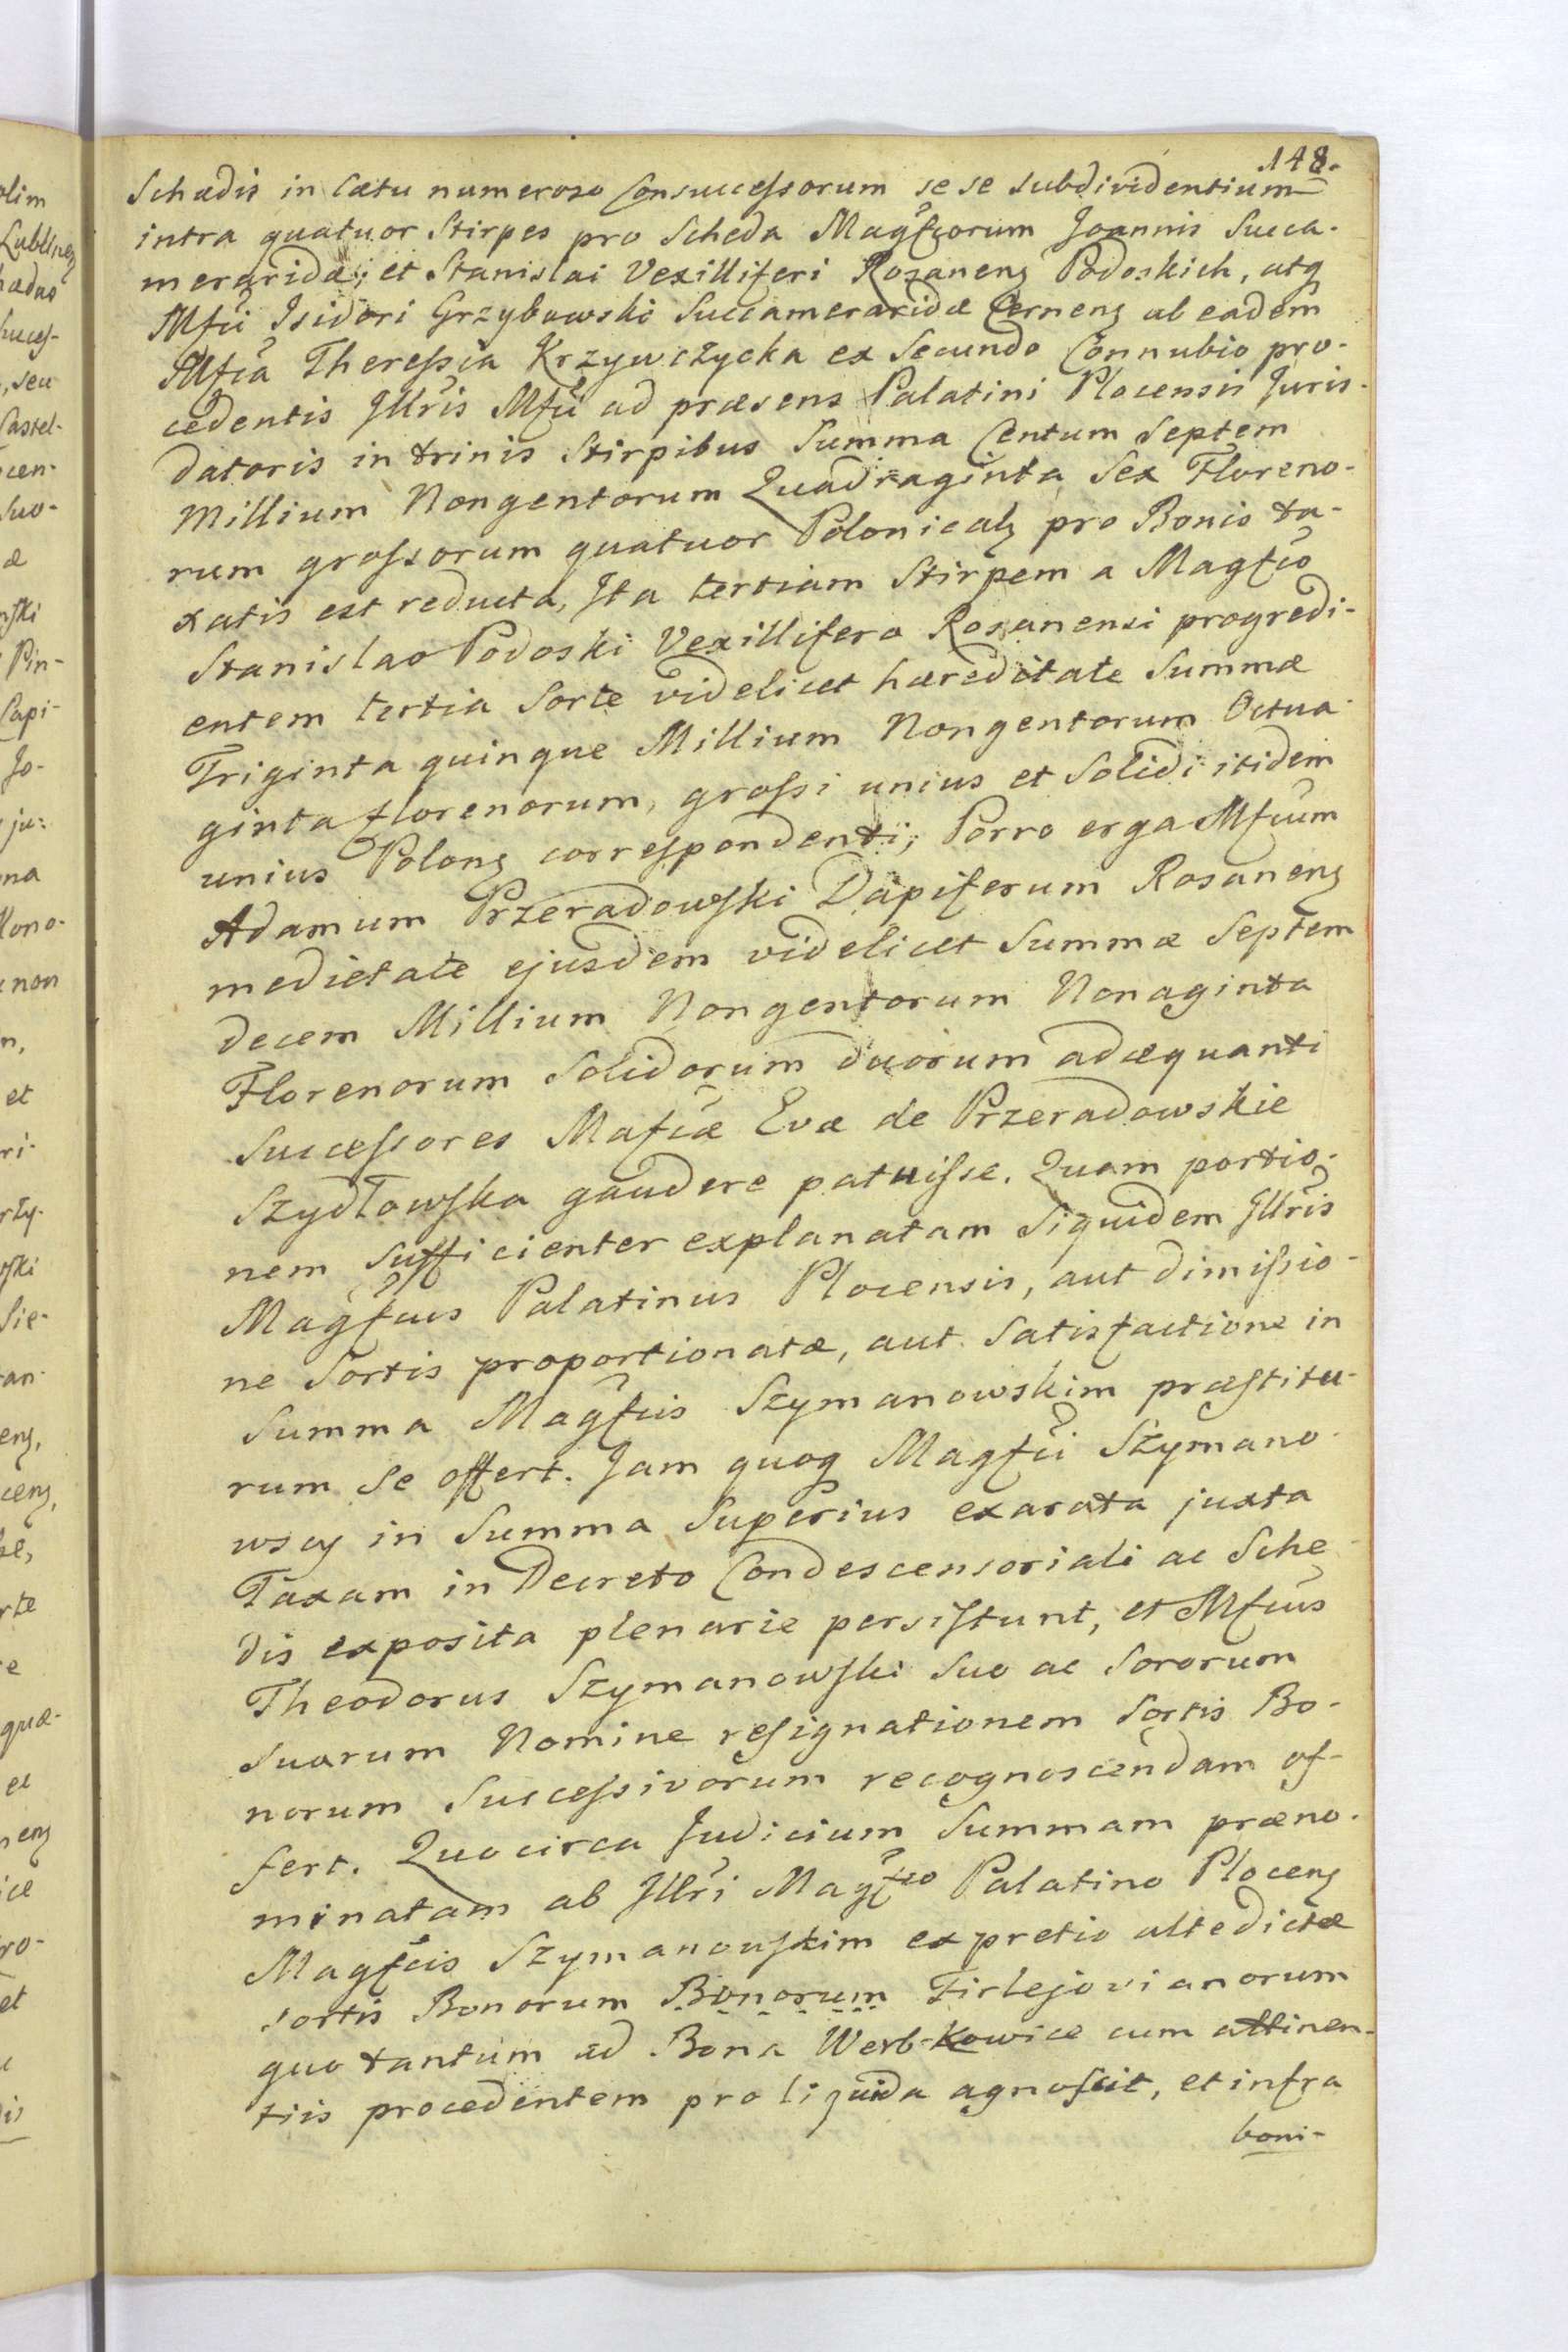 148.
Schædis in Cætu numeroso Consuccessorum sese subdividentium
intra quatuor Stirpes pro Scheda Magfcorum Joannis Succa-
meraridæ, et Stanislai Vexilliferi Rozanens Podoskich, atq
Mfci Isidori Grzybowski Succameraridæ Cernens ab eadem
Mfca Theressia Krzywczycka ex Secundo Connubio pro-
cedentis Illris Mfci ad præsens Palatini Plocensis Juris-
datoris in trinis Stirpibus Summa Centum Septem
Millium Nongentorum Quadraginta Sex Floreno-
rum grossorum quatuor Polonicals pro Bonis ta-
xatis est reducta, Ita tertiam Stirpem a Magfco
Stanislao Podoski Vexillifero Rosanensi progredi-
entem tertia Sorte videlicet hæreditate Summæ
Triginta quinque Millium Nongentorum Octua-
ginta florenorum, grossi unius et Solidi itidem
unius Polons correspondenti; Porro erga Mfcum
Adamum Przeradowski Dapiferum Rosanens
medietate ejusdem videlicet Summæ Septem
decem Millium Nongentorum Nonaginta
Florenorum Solidorum duorum adæquanti
Successores Mafcæ Evæ de Przeradowskie
Szydłowska gaudere patuisse. Quam portio-
nem sufficienter explanatam Siquidem Illris
Magfcus Palatinus Plocensis, aut dimissio-
ne Sortis proportionatæ, aut Satisfactione in
Summa Magfcis Szymanowskim præstitu-
rum se offert. Jam quoq Magfci Szymano-
wscy in Summa Superius exarata juxta
Taxam in Decreto Condescensoriali ac Sche
dis exposita plenarie persistunt, et Mfcus
Theodorus Szymanowski Suo ac Sororum
Suarum Nomine resignationem Sortis Bo-
norum Successivorum recognoscendam of-
fert. Quocirca Judicium Summam præno-
minatam ab Illri Magfco Palatino Plocens
Magfcis Szymanowskim ex pretio altedictæ
sortis Bonorum Bonorum Firlejovianorum
quo tantum ad Bona Werbkowice cum attinen-
tiis procedentem pro liquida agnoscit, et infra
boni-